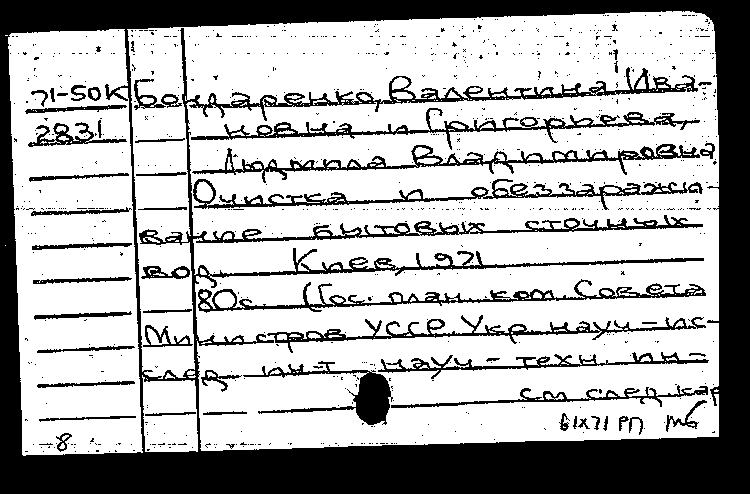 71-50К Бондаренко, Валентина Ива-
2831 новна и Григорьева,
Людмила Владимировна
Очистка и обеззаражи-
вание бытовых сточных
вод. Киев, 1971
80с. (Гос. план. ком. Совета
Министров УССР. Укр. науч-ис-
след ин-т науч-техн. ин-
см след кар
РП
8